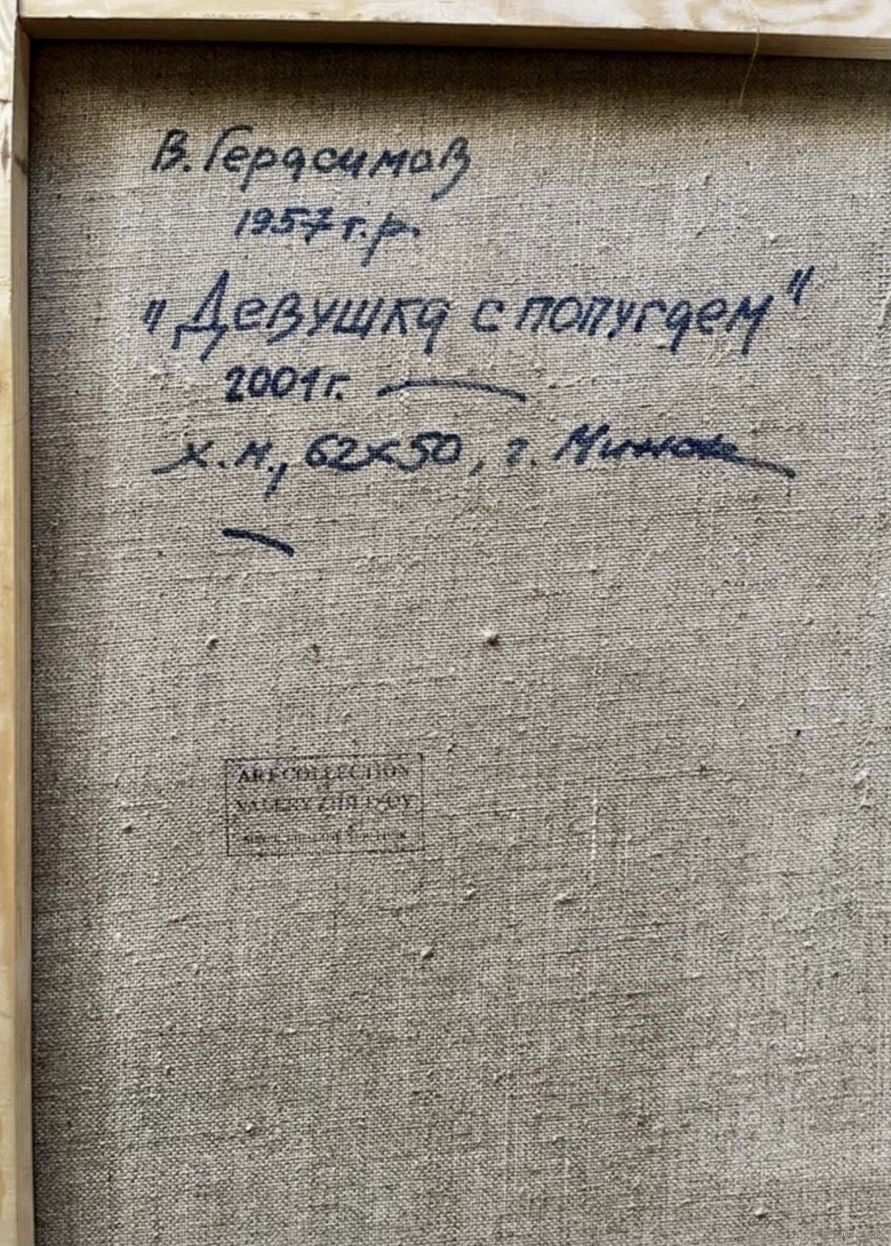 В. Герасимов
1957 г.р.
"Девушка с попугаем"
2001 г.
х.м., 62х50, г. Минск
ART COLLECTION
VALERY